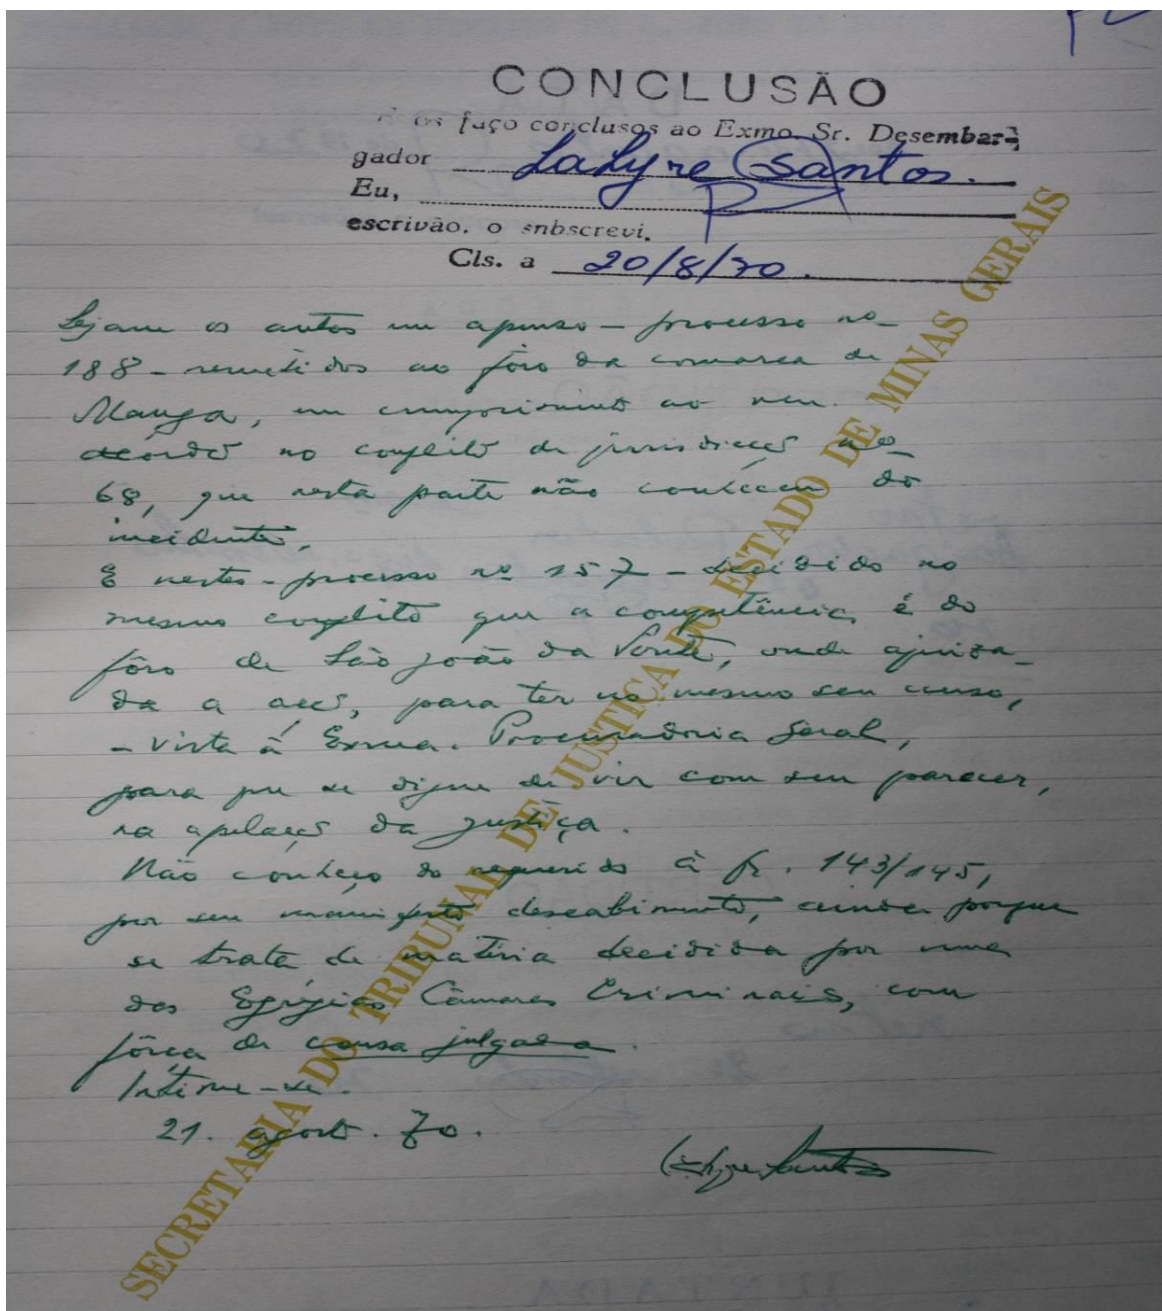 CONCLUSÃO
os faço conclusos ao Exmo. Sr. Desembar-
gador Lahyre Santos.
Eu,
escrivão, o snbscrevi.
Cls. a 20/8/70.
Sejam os autos em apenso - processo nº
188 - remetidos ao fôro da comarca de
Manga, em cumprimento ao ven.
acórdão no conflito de jurisdição nº
68, que nesta parte não conheceu do
incidente.
E nestes - processo nº 157 - decidido no
mesmo conflito que a competência é do
fôro de São João da Ponte, onde ajuiza-
da a ação, para ter no mesmo seu curso,
- vista à Exma. Procuradoria Geral,
para que se digne de vir com seu parecer,
na apelação da justiça.
Não conheço do requerido à fs. 143/145,
por seu manifesto descabimento, ainda porque
se trata de matéria decidida por uma
das Egrégias Câmaras Criminais, com
fôrça de causa julgada.
Intime-se.
21. agosto. 70.
Lahyre Santos
SECRETARIA DO TRIBUNAL DE JUSTIÇA DO ESTADO DE MINAS GERAIS